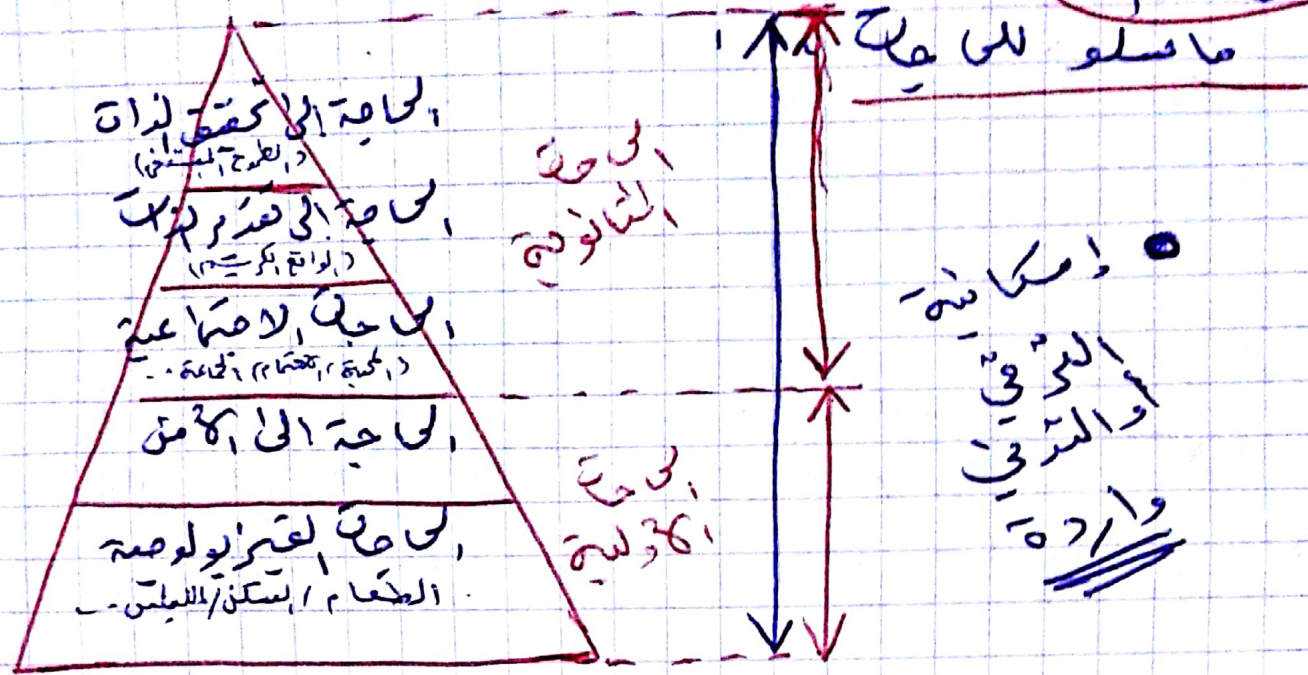 ماسلو للحاجات
الحاجة إلى تحقيق الذات
الحاجة إلى تقدير الذات
الحاجات الاجتماعية
(المحبة، الاهتمام، الجماعة...
الحاجة إلى الأمن
الحاجات الفيزيولوجية
الطعام / السكن / الملبس...
الحاجات
الثانوية
الحاجات
الأولية
• إمكانية
الترقي
والتدني
واردة